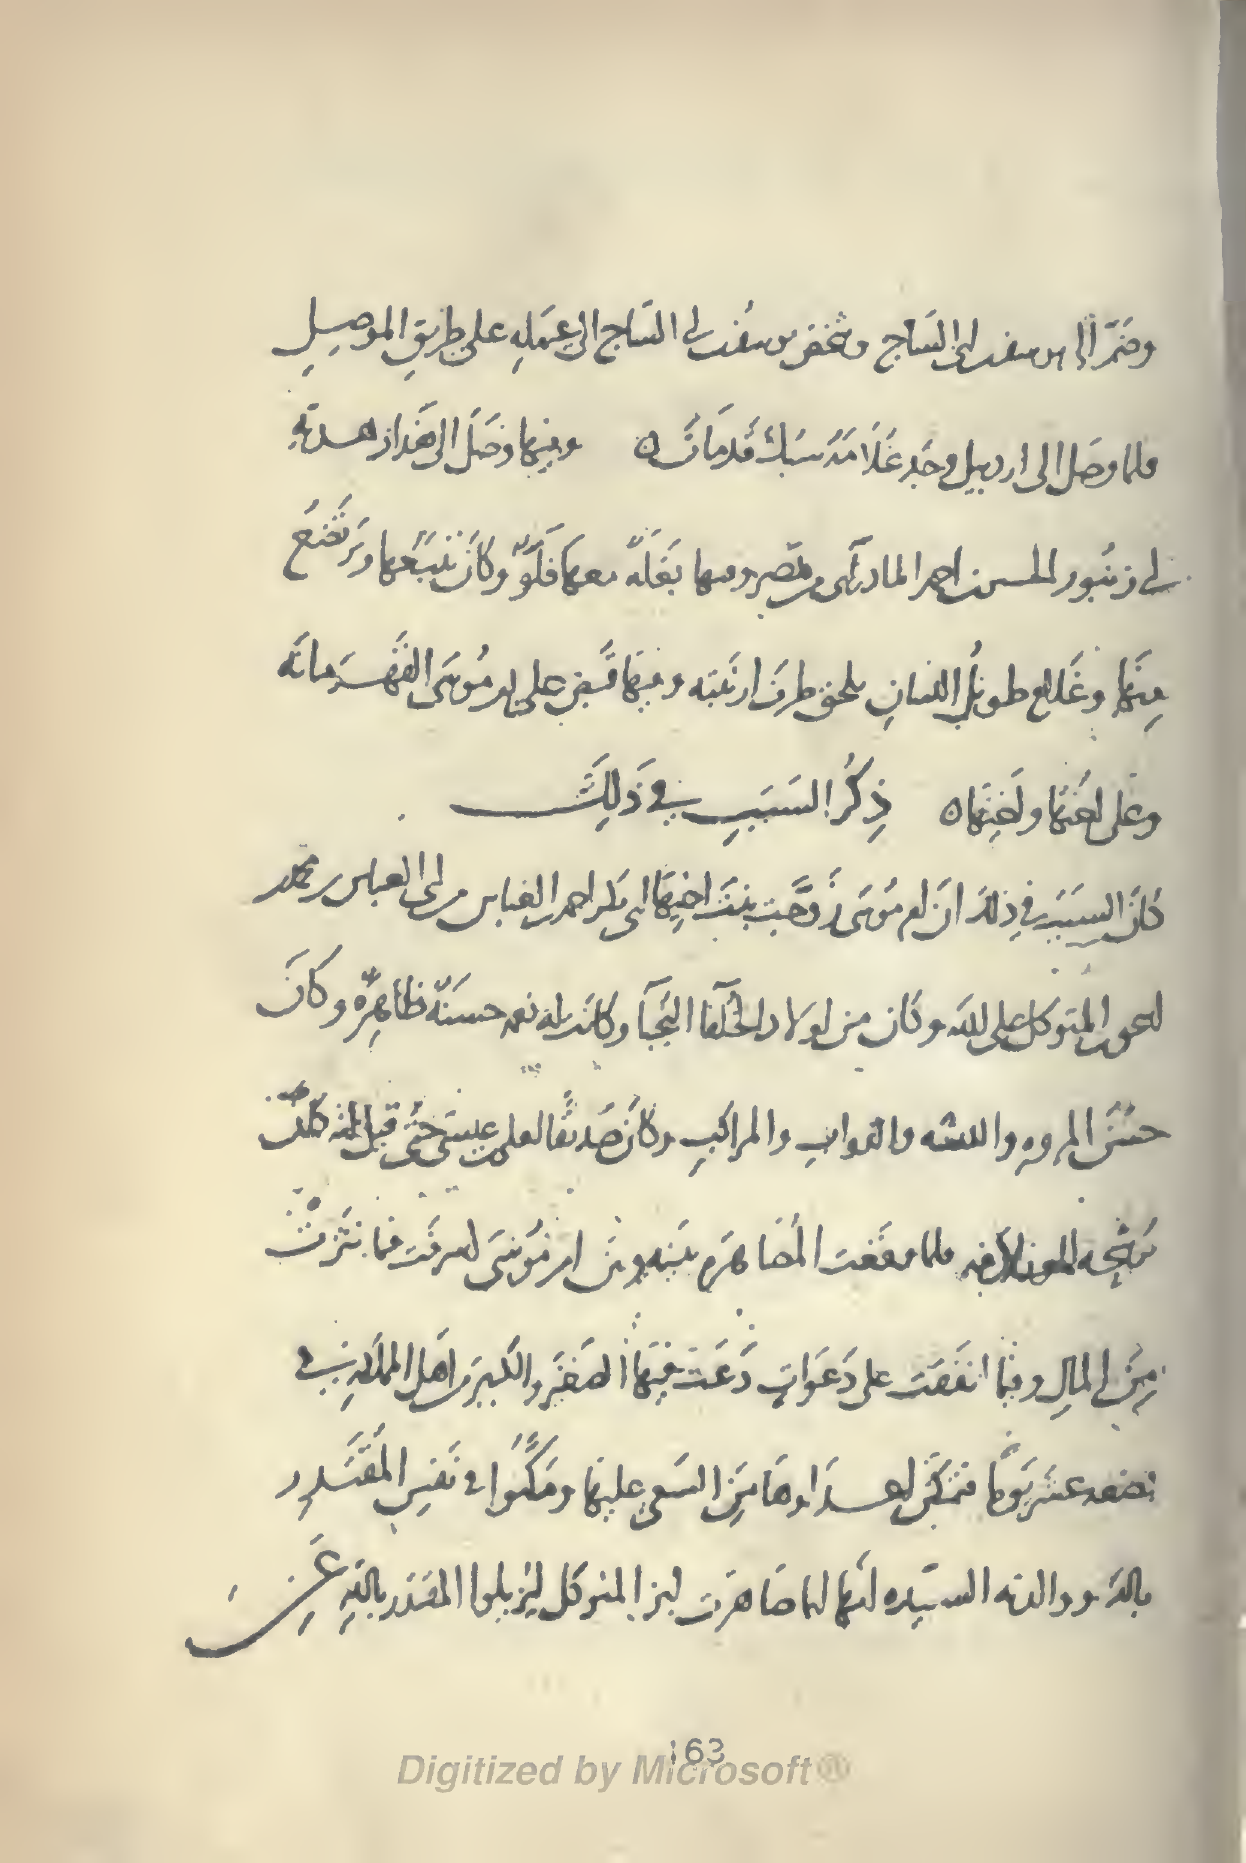 وضمّ إلى يوسف بن ابى الساج وشخص يوسف بن ابى الساج الى عمله على طريق الموصل
فلما وصل الى اردبيل وجد غلامه سبك قد مات ه وفيها وصل الى بغداد هديّة
ابى زنبور الحسين بن احمد الماذرآئى من مصر وفيها بغلة معها فلوّ وكان يتبعها ويرتضع
منها وغلام طويل اللسان يلحق طرف ارنبته وفيها قبض على ام موسى القهرمانة
وعلى اختها واخيها ه ذكر السبب فى ذلك
كان السبب فى ذلك ان ام موسى زوّجت بنت اخيها ابى بكر احمد بن العباس من ابى العباس بن محمد
بن اسحق بن المتوكل على الله وكان من اولاد الخلفا النجبآ وكانت له نعمة حسنة ظاهرة وكان
حسن المروه واللبسه والدواب والمراكب وكان صديقا لعلى بن عيسى حتى قيل انه كان
يرشّحه للخلافه فلما وقعت المصاهرة بينه وبين ام موسى اسرفت فيما نثرت
من المال وفيما انفقت على دعوات دعت فيها الصغير والكبير من اهل المملكة فى
بضعة عشر يوما فتمكّن اعداوها من السعى عليها ومكّنوا فى نفس المقتدر
بالله ووالدته السيّده انها انما صاهرت ابن المتوكل ليزيلوا المقتدر بالله عن
163
Digitized by Microsoft®